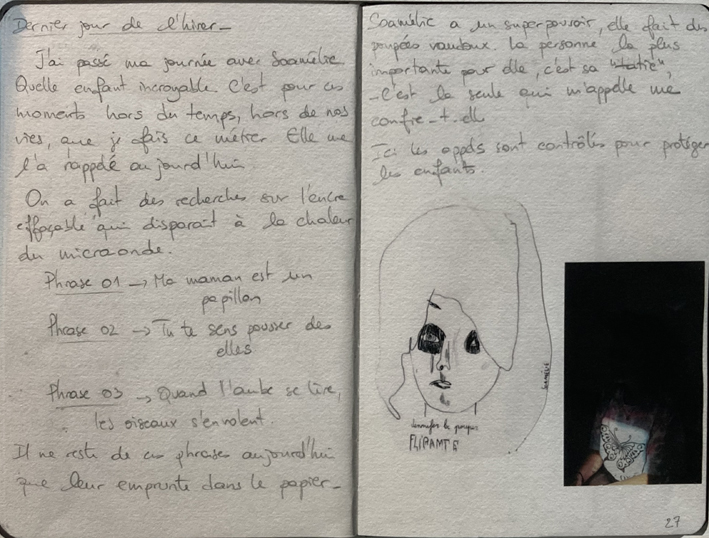 Dernier jour de l'hiver_
J'ai passé ma journée avec Soamélie.
Quelle enfant incroyable. C'est pour ces
moments hors du temps, hors de nos
vies, que je fais ce métier. Elle me
l'a rappelé aujourd'hui.
On a fait des recherches sur l'encre
effaçable qui disparait à la chaleur
du microonde.
Phrase 01 → Ma maman est un
papillon
Phrase 02 → Tu te sens pousser des
elles
Phrase 03 → Quand l'aube se lève,
les oiseaux s'envolent.
Il ne reste de ces phrases aujourd'hui
que leur emprunte dans le papier_
Soamélie a un superpouvoir, elle fait des
poupées vaudoux. La personne la plus
importante pour elle, c'est sa "tatie",
_C'est la seule qui m'appelle me
confie-t-elle
Ici les appels sont contrôlés pour protéger
les enfants.
la poupée
FLIPANTE
27